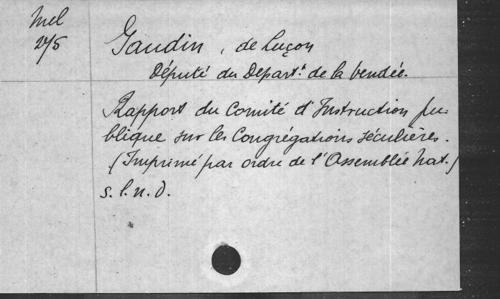 Mel
275
Gaudin, de Luçon
Député du Départ.t de la Vendée.
Rapport du Comité d'Instruction pu-
blique sur les Congrégations séculières.
(Imprimé par ordre de l'Assemblée nat.)
s.l.n.d.